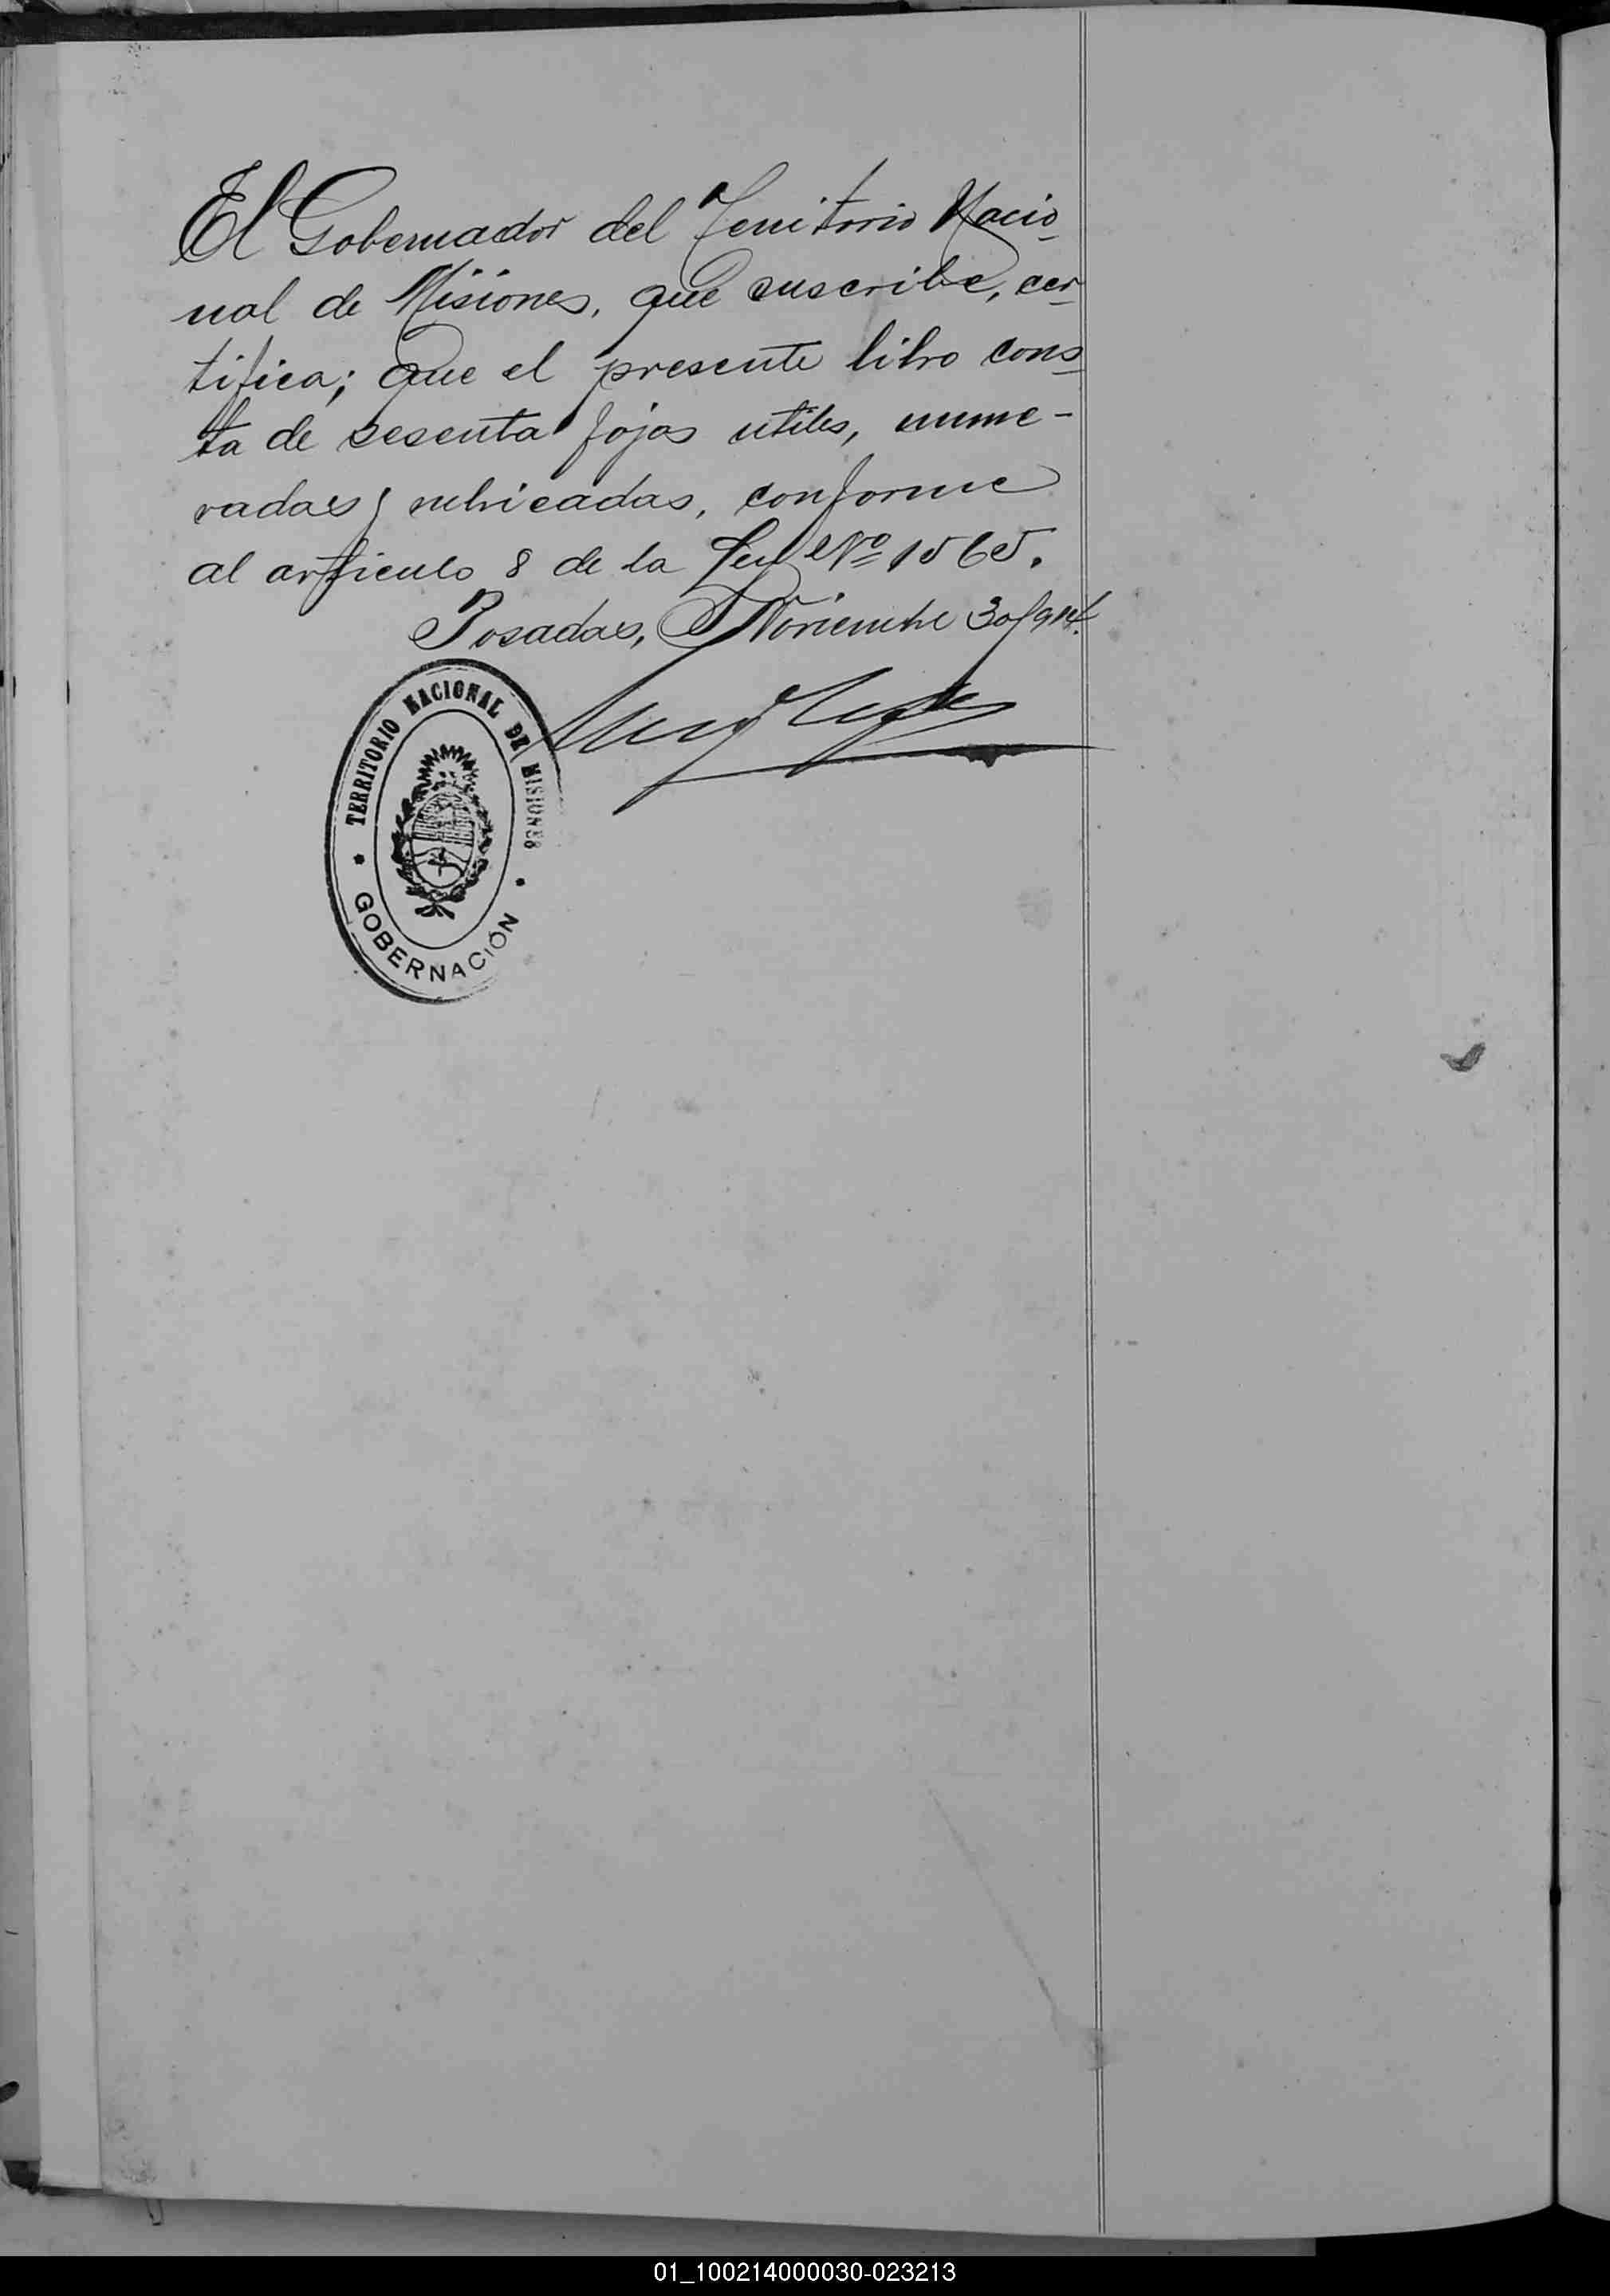 El Gobernador del Territorio Nacio-
nal de Misiones, que suscribe, cer-
tifica; Que el presente libro cons-
ta de sesenta fojas utiles, nume-
radas y rubricadas, conforme
al articulo 8 de la Ley Nº 1565.
Posadas, Noviembre 30/914.
TERRITORIO NACIONAL DE MISIONES
* GOBERNACIÓN *
01_100214000030-023213